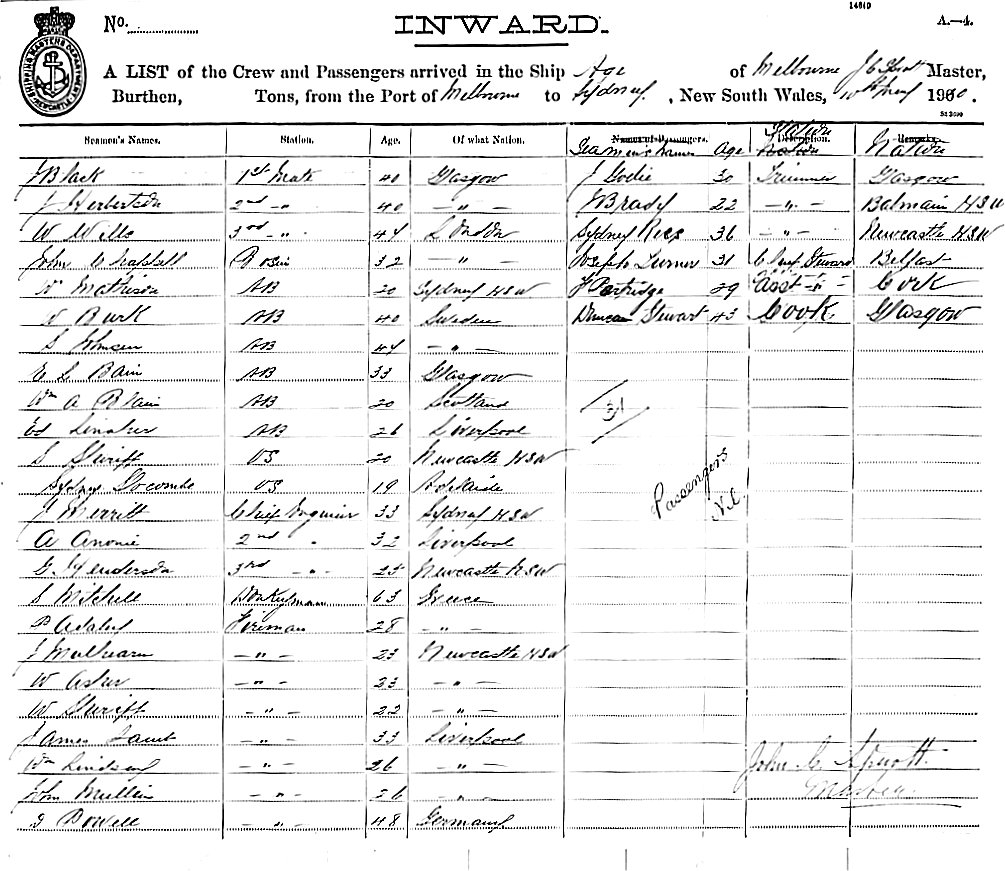 14640
No.
INWARD.
A.—4.
A LIST of the Crew and Passengers arrived in the Ship Age of Melbourne J C Spratt Master,
Burthen, Tons, from the Port of Melbourne to Sydney, New South Wales, 1900.
Seamen's Names. Station. Age. Of what Nation. Names of Passengers. Age Description. Remarks.
Seamen's Names Station Nation
J Black 1st Mate 40 Glasgow J 30 Trimmer Glasgow
J Herbertson 2nd -"- 40 -"- J Brady 22 -"- Balmain NSW
W Wills 3rd -"- 44 London Sydney Rees 36 -"- Newcastle NSW
John 32 -"- Joseph Turner 31 Chief Steward Belfast
W Mathison AB 20 Sydney NSW J Partridge 29 Asst -"- Cork
W Burk AB 40 Sweden Duncan Stewart 43 Cook Glasgow
S Johnson AB 44 -"-
L Bain AB 33 Glasgow
Wm A Blain AB 20 Scotland
31
Ed Linaker AB 26 Liverpool
S OS 20 Newcastle NSW
Sydney Docombe OS 19 Adelaide
Passengers
Nil
J Merritt Chief Engineer 33 Sydney NSW
A 2nd " 32 Liverpool
G Henderson 3rd -"- 25 Newcastle NSW
S Mitchell Donkeyman 63 Greece
Fireman 28 -"-
J Mulhearn -"- 23 Newcastle NSW
W Asher -"- 23 -"-
W -"- 22 -"-
James Lamb -"- 33 Liverpool
Wm Lindsay -"- 26 -"-
John Mullin -"- 26 -"-
Powell -"- 48 Germany
John C Spratt
Master